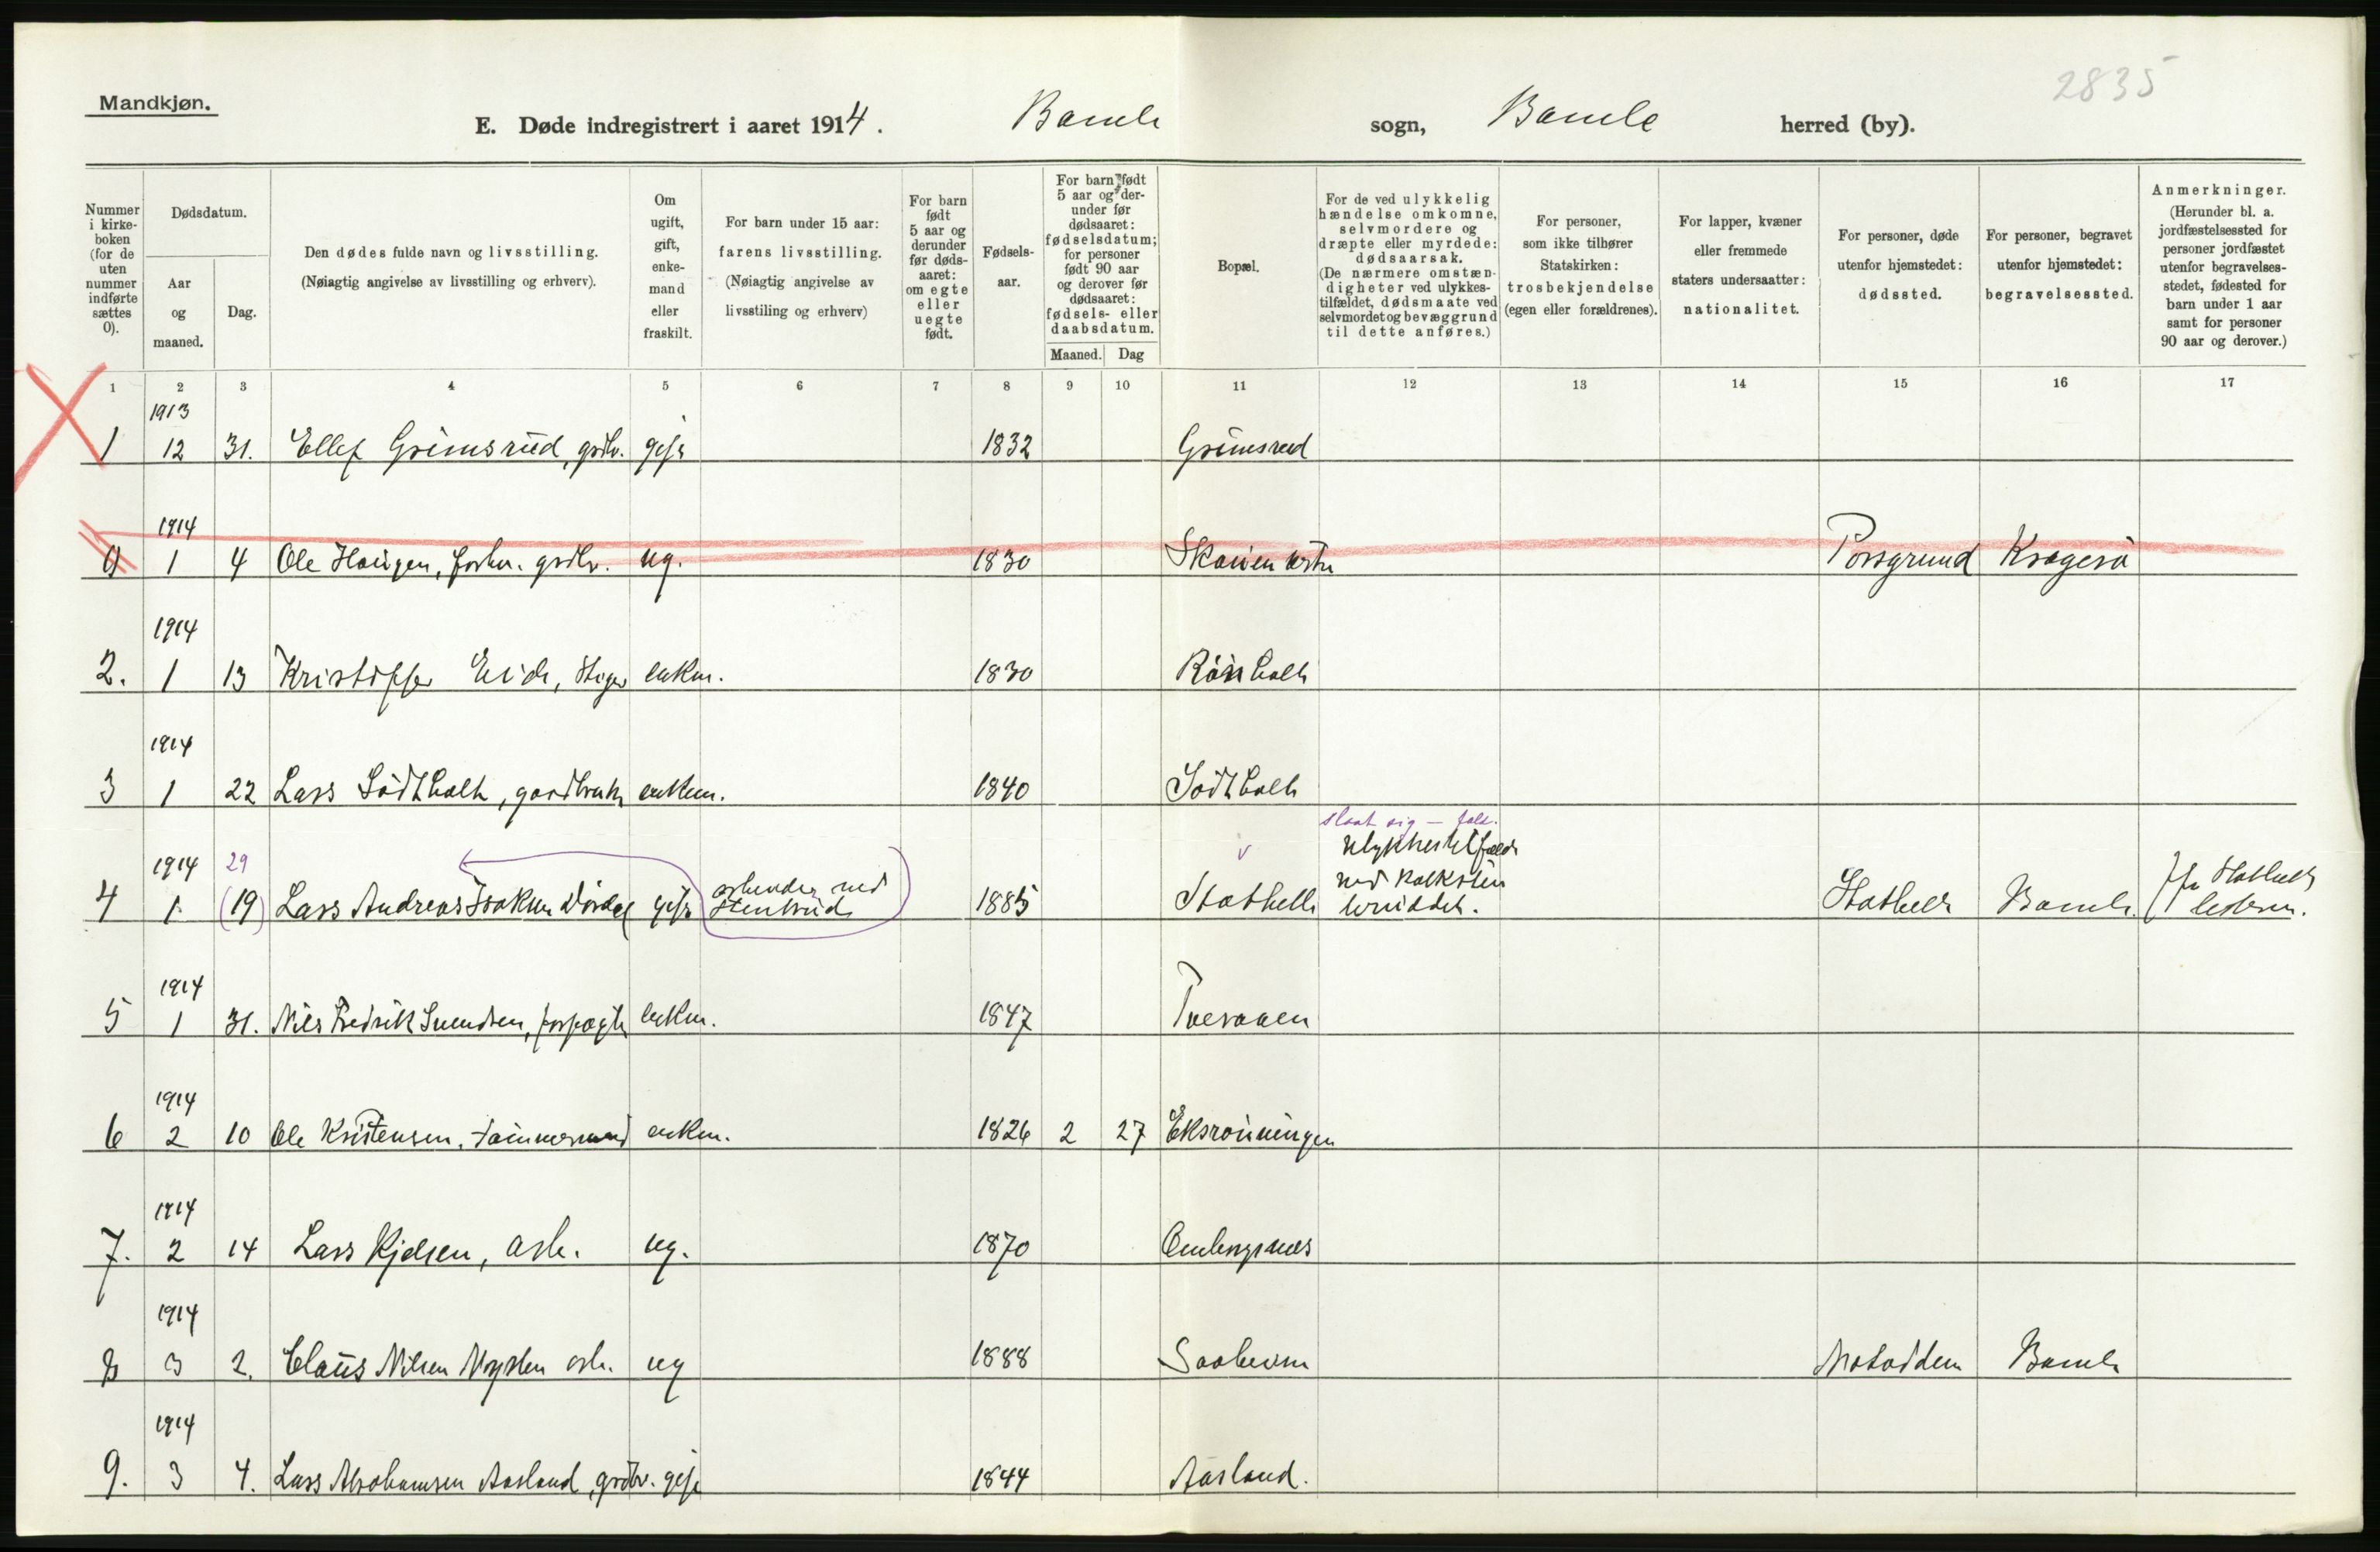 2835
Mandkjøn.
E. Døde indregistrert i aaret 1914. Bamle sogn, Bamle herred (by).
Nummer i kirke-boken (for de uten nummer indførte sættes 0).
Dødsdatum.
Aar og maaned.
Dag.
Den dødes fulde navn og livsstilling.
(Nøiagtig angivelse av livsstilling og erhverv).
Om ugift, gift, enke-mand eller fraskilt.
For barn under 15 aar: farens livsstilling.
(Nøiagtig angivelse av livsstiling og erhverv)
For barn født 5 aar og derunder før døds-aaret: om egte eller uegte født.
Fødsels-aar.
For barn født 5 aar og der-under før dødsaaret: fødselsdatum; for personer født 90 aar og derover før dødsaaret: fødsels- eller daabsdatum.
Maaned. Dag
Bopæl.
For de ved ulykkelig hændelse omkomne, selvmordere og dræpte eller myrdede: dødsaarsak.
(De nærmere omstæn-digheter ved ulykkes-tilfældet, dødsmaate ved selvmordet og bevæggrund til dette anføres.)
For personer, som ikke tilhører Statskirken: trosbekjendelse (egen eller forældrenes).
For lapper, kvæner eller fremmede staters undersaatter: nationalitet.
For personer, døde utenfor hjemstedet: dødssted.
For personer, begravet utenfor hjemstedet: begravelsessted.
Anmerkninger.
(Herunder bl. a. jordfæstelsessted for personer jordfæstet utenfor begravelses-stedet, fødested for barn under 1 aar samt for personer 90 aar og derover.)
1 2 3 4 5 6 7 8 9 10 11 12 13 14 15 16 17
1913
1 12 31. Ellef Grimsrud, grdbr. gift 1832 Grimsrud
1914
0 1 4 Ole Haugen, forhv. grdbr. ug. 1830 Skauen Porsgrund Kragerø
1914
2. 1 13 Kristoffer Eide, Stiger enkm. 1830 Rønholt
1914
3 1 22 Lars Sødtholt, gaardbruk enkem. 1840 Sødtholt
slaat sig — fald.
1914 29 ulykkestilfælde
4 1 (19) Lars Andreas Isaksen Dørdal gift arbeider ved 1885 Stathelle ved kalksten bruddet. Stathelle Bamle
1914
5 1 31. Nils Fredrik Svendsen, forpagt enkm. 1847 Tveraaen
1914
6 2 10 Ole Kristensen, tømmermand enkm. 1826 2 27 Eksrønningen
1914
7. 2 14 Lars Kjelsen, arb. ug. 1870 Omlengsnes
1914
8 3 2. Claus Nilsen arb. ug 1888 Saaheim Notodden Bamle
1914
9. 3 4. Lars Abrahamsen Aasland, grdbr. gift 1844 Aasland.